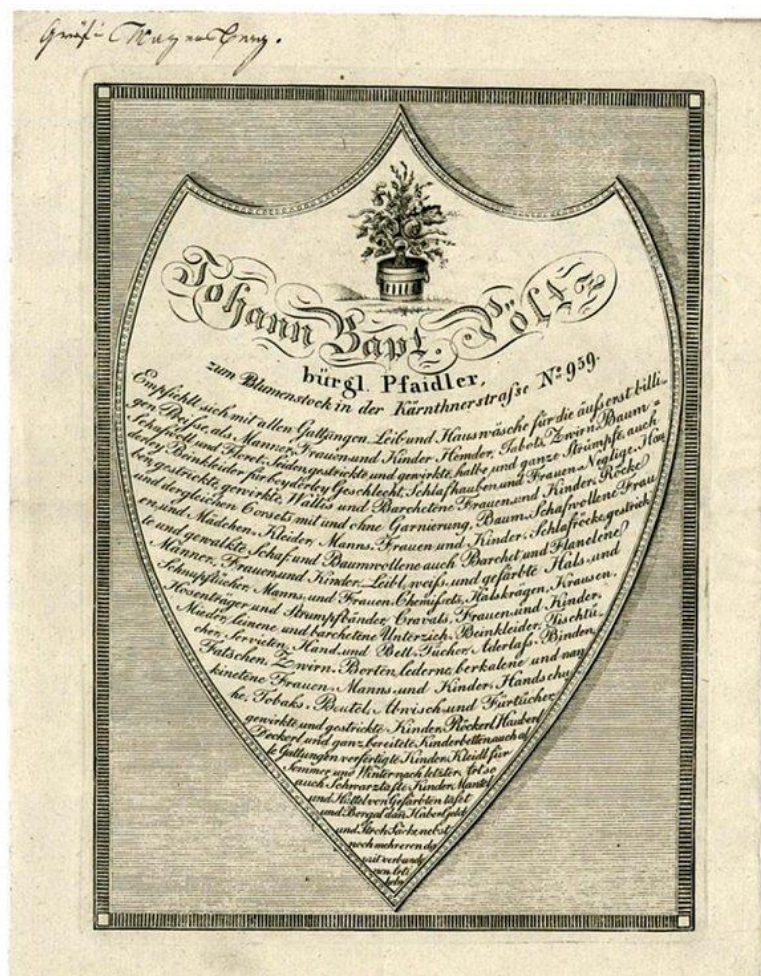 Johann Bapt. Pöltz
bürgl. Pfaidler,
zum Blumenstock in der Kärnthnerstraſse No. 959.
Empfiehlt sich mit allen Gattungen Leib und Hauswäsche für die äuſserst billi-
gen Preiſse, als Männer, Frauen und Kinder Hemder, Jabots, Zwirn, Baum-
Schafwoll und Floret, Seiden, gestrickte, und gewirkte, halbe und ganze Strümpfe, auch
derley Beinkleider für beyderley Geschlecht, Schlafhauben, und Frauen Neglige, Hau-
ben, gestrickte, gewirkte, Wallis und Barchetene Frauen, und Kinder, Röcke
und dergleichen Corsets mit und ohne Garnierung, Baum, Schafwollene Frau
en, und Mädchen, Kleider, Manns, Frauen und Kinder, Schlafröcke, gestrick
te und gewalkte Schaf, und Baumwollene auch Barchet und Flanelene
Männer, Frauen, und Kinder, Leibl, weiſs, und gefärbte Hals, und
Schnupftücher, Manns, und Frauen Chemiſsets, Halskrägen, Krausen,
Hosenträger und Strumpfbänder, Cravats, Frauen, und Kinder,
Mieder, leinene, und barchetene Unterzieh, Beinkleider, Tischtü
cher, Servieten, Hand, und Bett, Tücher, Aderlaſs, Binden,
Fatschen, Zwirn, Borten, lederne, berkalene und nan
kinetene Frauen, Manns, und Kinder, Handschu
he, Tobaks, Beutel, Abwisch, und Fürtücher,
gewirkte, und gestrickte Kinder, Röckerl, Hauberl
Deckerl und ganz bereitete Kinderbetten, auch al
le Gattungen verfertigte Kinder, Kleidl für
Sommer, und Winter nach letzter Art, so
auch Schwarztafte Kinder, Mantel
und Hüttel von Gefärbten tafet
und Bergal dan Haber, Geld
und Stroh, Säcke nebst
noch mehreren da
mit verbunde
nen Arti
keln